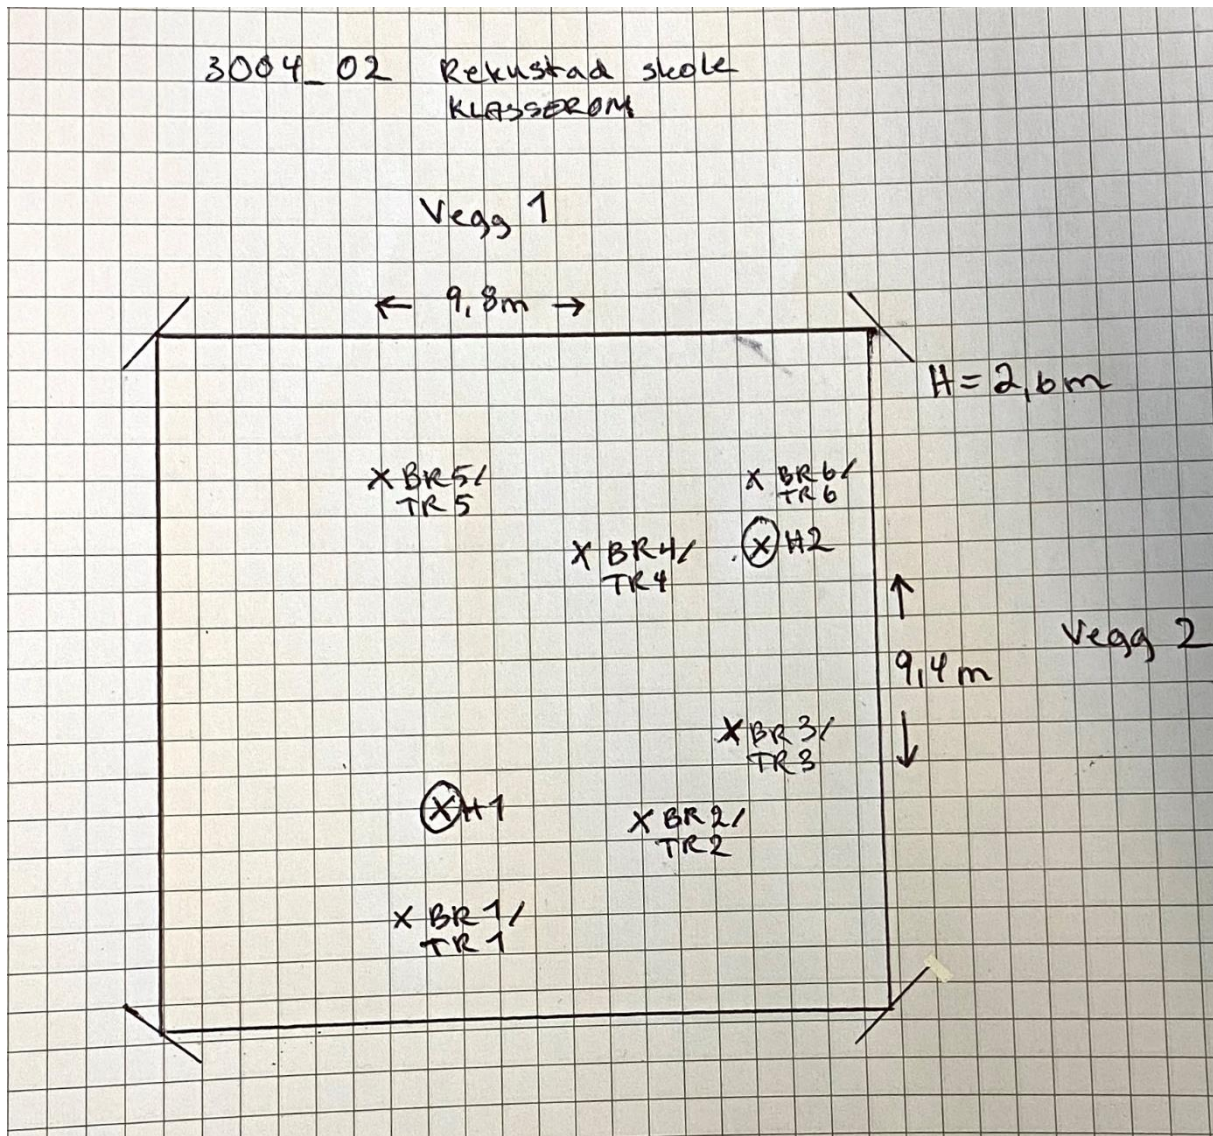 3004_02 Rekustad skole
KLASSEROM
Vegg 1
← 9,8m →
H = 2,6m
X BR5/
TR5
X BR6/
TR6
X BR4/
TR4
X H2
↑
9,4 m
↓
Vegg 2
X BR3/
TR3
X H1
X BR2/
TR2
X BR1/
TR1